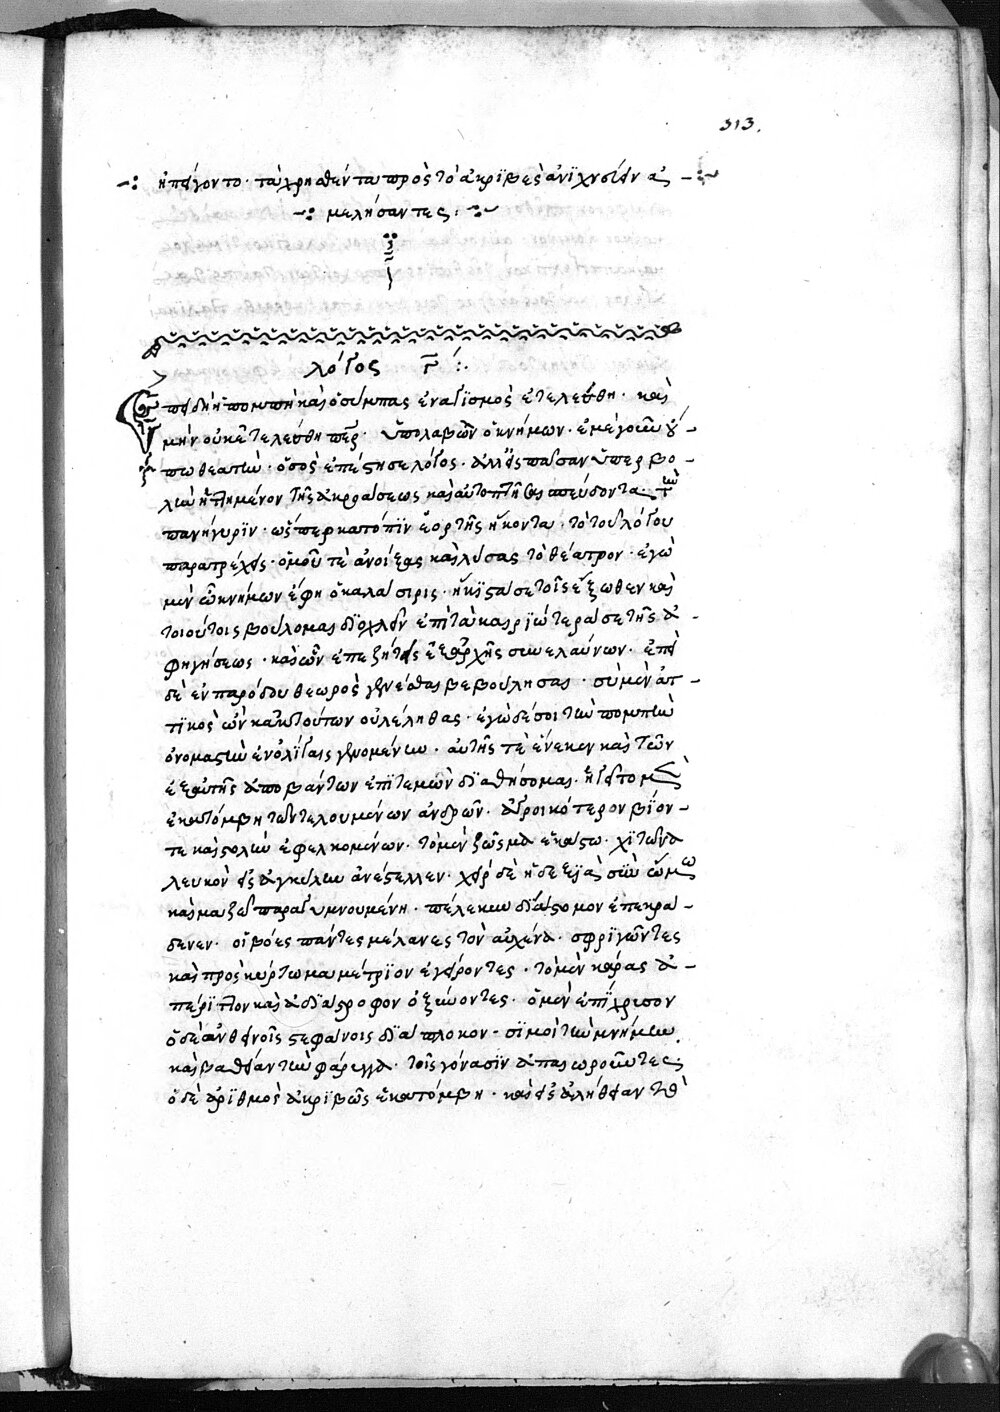 313.
ἠπείγοντο· τὰ χρησθέντα πρὸς τὸ ἀκριβὲς ἀνϊχνεύειν ἀ
μελήσαντες:
λόγος γ̅:
Ἐπεὶ δὴ ἡ πομπὴ καὶ ὁ σύμπας ἐναγϊσμὸς ἐτελέσθη· καὶ
μὴν οὐκ ἐτελέσθη πάτερ· ὑπολαβὼν ὁ κνήμων· ἐμὲ γοῦν οὔ-
πω θεατὴν· ὁ σὸς ἐπέστησε λόγος· ἀλλ' εἰς πᾶσαν ὑπερβο-
λὴν ἡττημένον τῆς ἀκροάσεως καὶ αὐτοπτῆσαι σπεύδοντα τὴν
πανήγυρϊν· ὥσπερ κατόπϊν ἑορτῆς ἥκοντα· τὸ τοῦ λόγου
παρατρέχεις· ὁμοῦ τὲ ἀνοίξας καὶ λύσας τὸ θέατρον· ἐγὼ
μὲν ὦ κνήμων ἔφη ὁ καλάσιρις· ἥκϊστά σε τοῖς ἔξωθεν καὶ
τοιούτοις βούλομαι δϊοχλεῖν ἐπὶ τὰ καιρϊώτερά σε τῆς ἀ-
φηγήσεως· καὶ ὧν ἐπεζήτεις ἐξαρχῆς συνελαύνων· ἐπεὶ
δὲ ἐν παρόδου θεωρὸς γενέσθαι βεβούλησαι· σὺ μὲν ἀτ-
τϊκὸς ὢν κἀκ τούτων οὐ λέληθας· ἐγὼ δέ σοι τὴν πομπὴν
ὀνομαστὴν ἐν ὀλίγαις γενομένην· αὐτῆς τὲ ἕνεκεν καὶ τῶν
ἐξ αὐτῆς ἀποβάντων ἐπϊτεμὼν δϊαθήσομαι· ἡγεῖτο μὲν
ἑκατόμβη τῶν τελουμένων ἀνδρῶν· ἀγροικότερον βίον-
τε καὶ στολὴν ἐφελκομένων· τὸ μὲν ζῶσμα ἑκάστω· χϊτῶνα
λευκὸν εἰς ἀγκύλην ἀνέστελλεν· χεὶρ δὲ ἡ δεξϊὰ σὺν ὤμω
καὶ μαζῶ παραγυμνουμένη· πέλεκυν δίστομον ἐπεκρά-
δαινεν· οἱ βόες πάντες μέλανες τὸν αὐχένα· σφριγῶντες
καὶ πρὸς κύρτωμα μέτρϊον ἐγείροντες· τὸ μὲν κέρας ἀ-
πέρϊττον καὶ ἀδϊάστροφον ὀξύνοντες· ὁ μὲν ἐπίχρυσον
ὁ δὲ ἀνθϊνοῖς στεφάνοις δϊάπλοκον· σϊμοὶ τὴν κνήμην
καὶ βαθεῖαν τὴν φάρυγγα· τοῖς γόνασϊν ἀπαιωροῦντες·
ὁ δὲ ἀρϊθμὸς ἀκρϊβῶς ἑκατόμβη· καὶ εἰς ἀλήθειαν τὸ